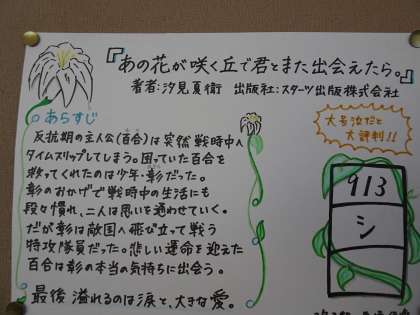 『あの花が咲く丘で君とまた出会えたら。』
著者:汐見夏衛 出版社:スターツ出版株式会社
あらすじ
反抗期の主人公(百合)は突然戦時中へ
タイムスリップしてしまう。困っていた百合を
救ってくれたのは少年・彰だった。
彰のおかげで戦時中の生活にも
段々慣れ、二人は思いを通わせていく。
だが彰は敵国へ飛び立って戦う
特攻隊員だった。悲しい運命を迎えた
百合は彰の本当の気持ちに出会う。
最後 溢れるのは涙と、大きな愛。
大号泣だと
大評判!!
913
シ